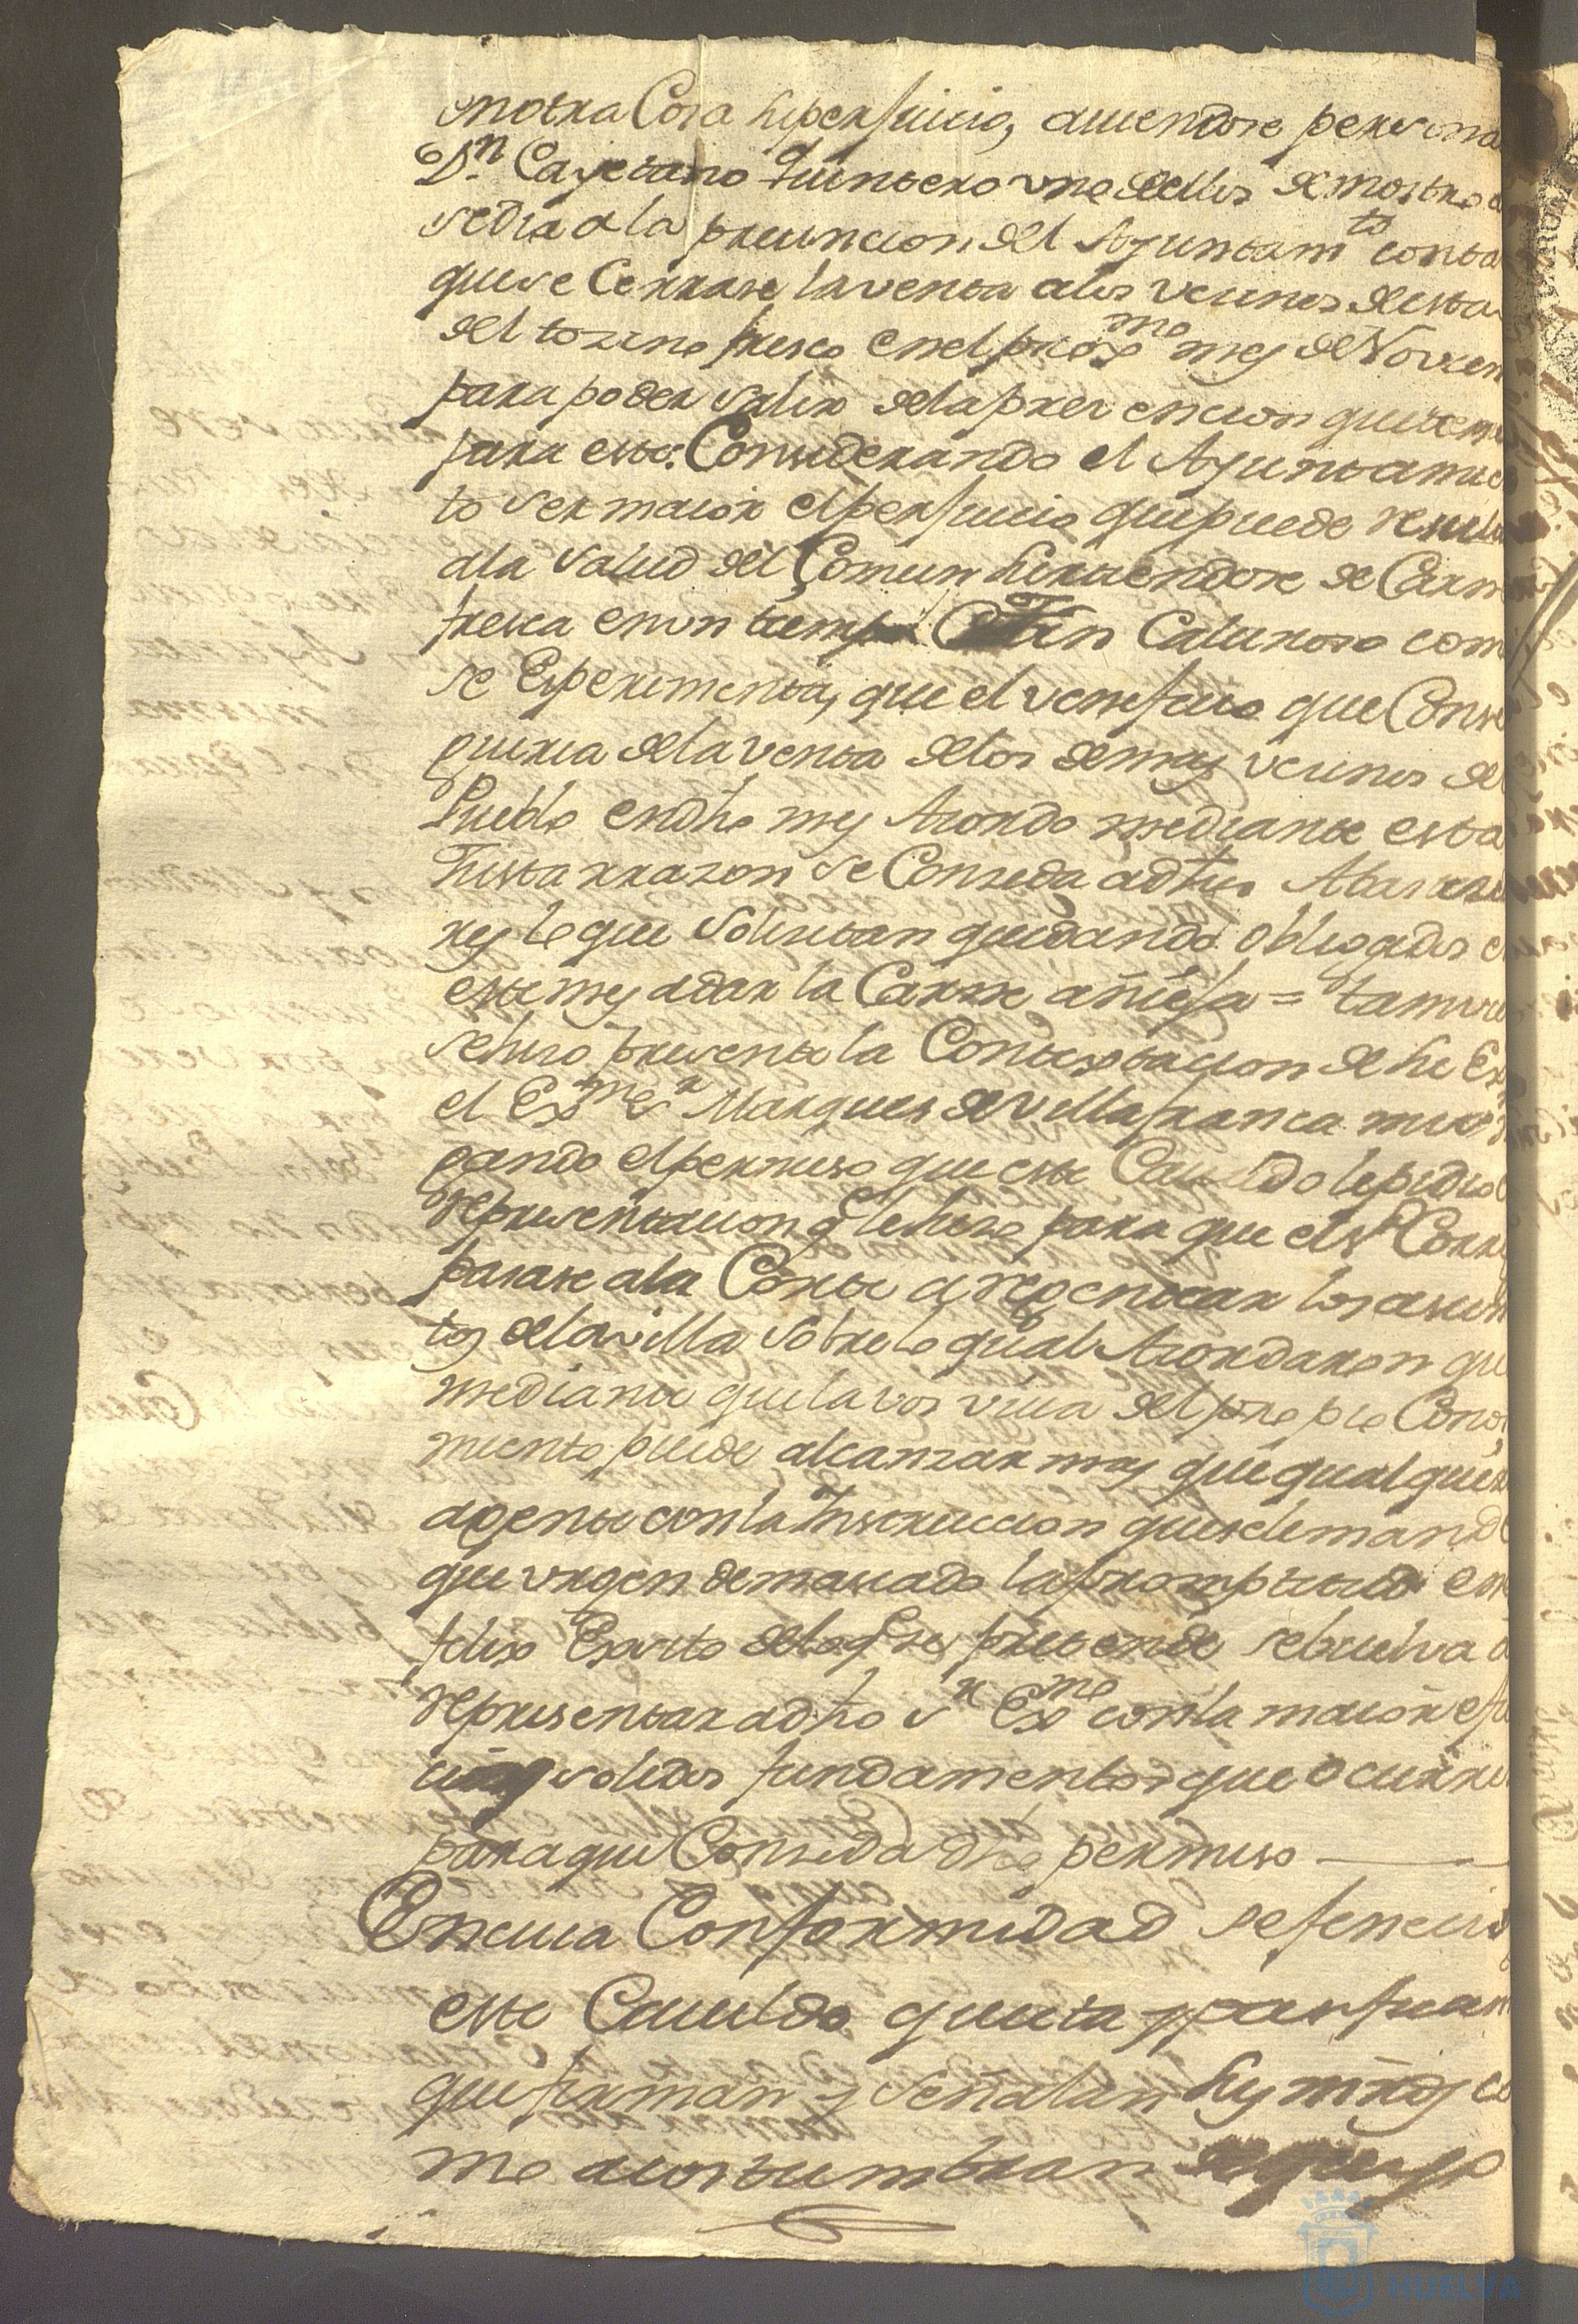 en otra Cosa superfluicio, auiendose persona
Dn. Cayetano Quintero uno dellos demostro
sedia a la precuncion del Ayuntamto conta
que se Cerrase la venta a los vecinos de esta
del tozino fresco en el proxmo mes de Novien
para poder salir de la prevencion que tiene
para esto: Considerando el Ayuntamie
to ser maior el perjuicio que puede resul
a la salud del Comun sirviendose de Carne
fresca en un tiempo tan Caluroso com
se Esperimenta, que el veneficio que Conse
guiria de la venta de los demas vecinos de
Pueblo en dho mes Acordo mediante esta
Justa rrazon se Conseda a dhos Abastese
res lo que solisitan quedando obligados e
este mes a dar la Carne añeja = tamvie
se hiso presente la Contextacion de
el Exmo Sr Marques de Villafranca mio
gando el permiso que este Cauildo le pidio
representacion q le hiso para que el Sr Corre
pasase a la Corte a agenciar los asun
tos de la villa sobre lo qual Acordaron qu
mediante que la vos viva del propio Conos
miento puede alcanzar mas que qualquier
agente con la Instruccion que se le mand
que urgen demasiado la promptitud en
felix Exsito de lo q se pretende se buelva a
representar a dho Sr Exmo con la maior efi
y solidos fundamentos que ocurre
para que Conseda dho permiso
En cuia Conformidad se fenecio
este Cauildo quieta y pasificam
que firman y señalan sus mrds co
mo acostumbran de que yo
HUELVA